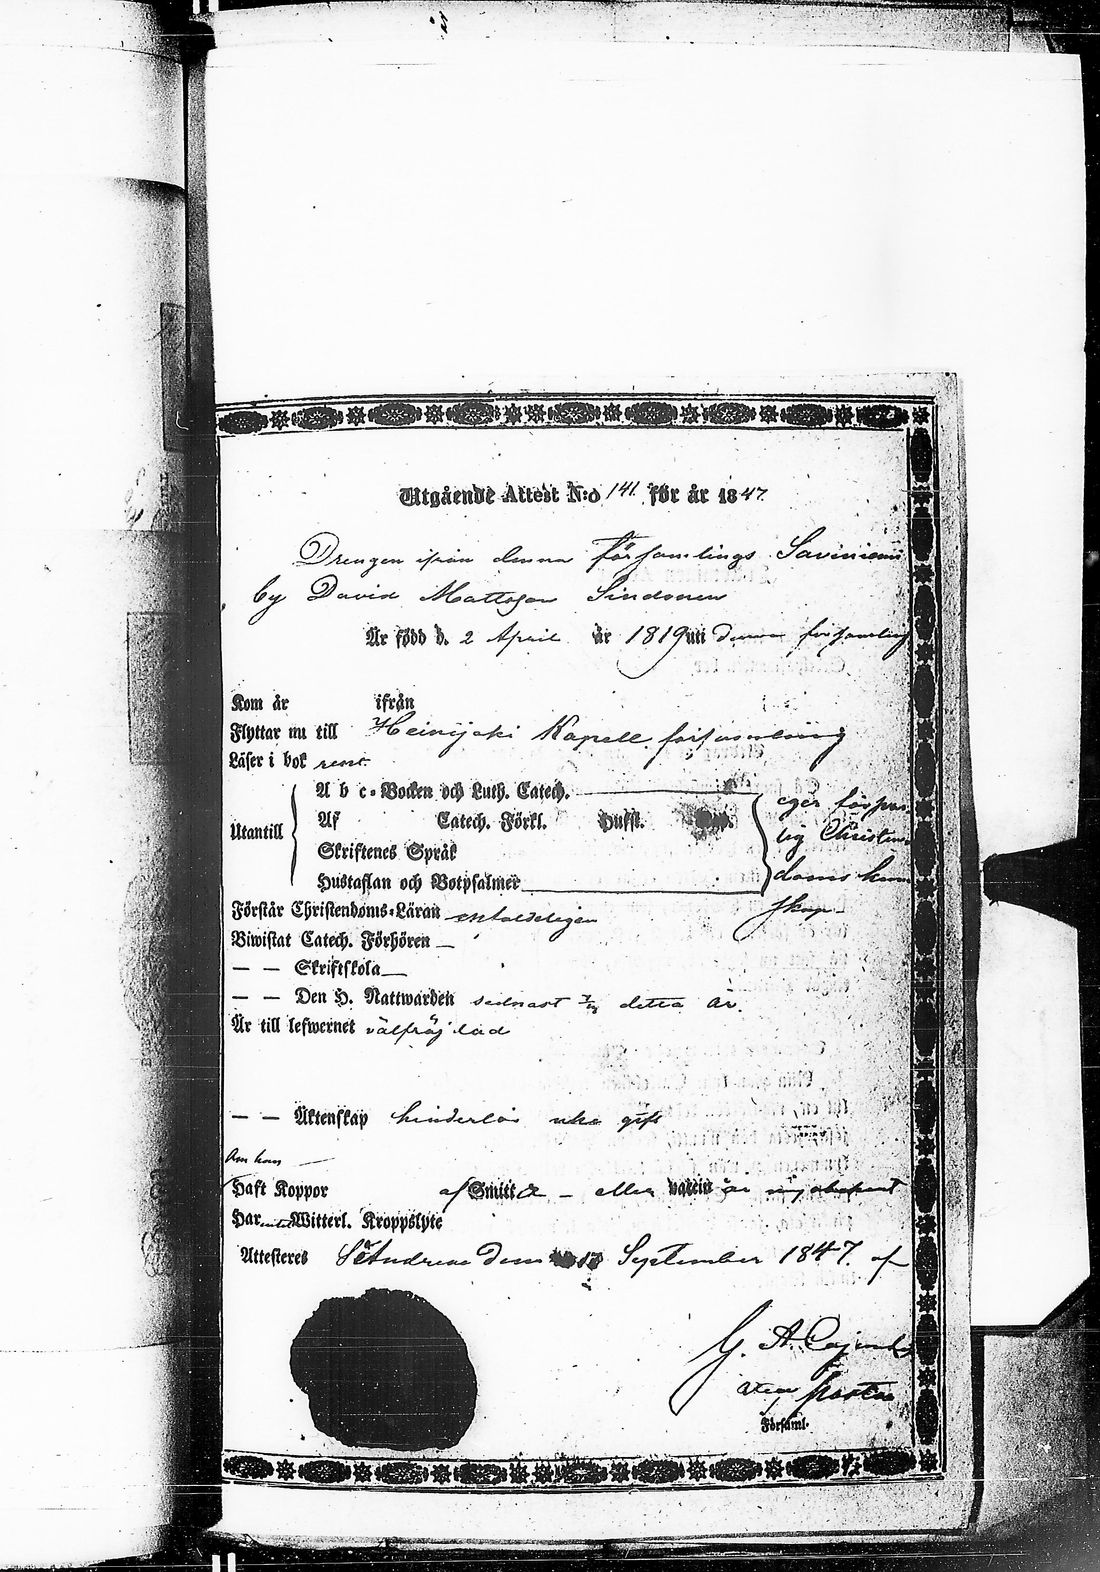 Utgående Attest N:o 141. för år 1847
Drengen ifrån denna församlings Saviniemi
by David Mattsson Sindonen
Är född d. 2 April år 1819 uti denna församling
Kom år ifrån
Flyttar nu till Heinijoki Kapell församling
Läser i bok rent
A b c-Bocken och Luth. Catech.
Utantill Af Catech. Förkl. Hufst.
Skriftenes Språk
Hustaflan och Botpsalmer
eger förswar
lig Christen
doms kun
skap
Förstår Christendoms-Läran enfaldeligen
Biwistat Catech. Förhören —
— — Skriftskola —
— — Den H. Nattwarden sednast detta år.
Är till lefwernet välfräjdad
— — Äktenskap hinderlös icke gift
Om han —
Haft Koppor af Smitta — eller vaccin är
Har Witterl. Kroppslyte
Attesteres S:t Andreae dem September 1847. af
G. A.
vice Pastor
Församl.